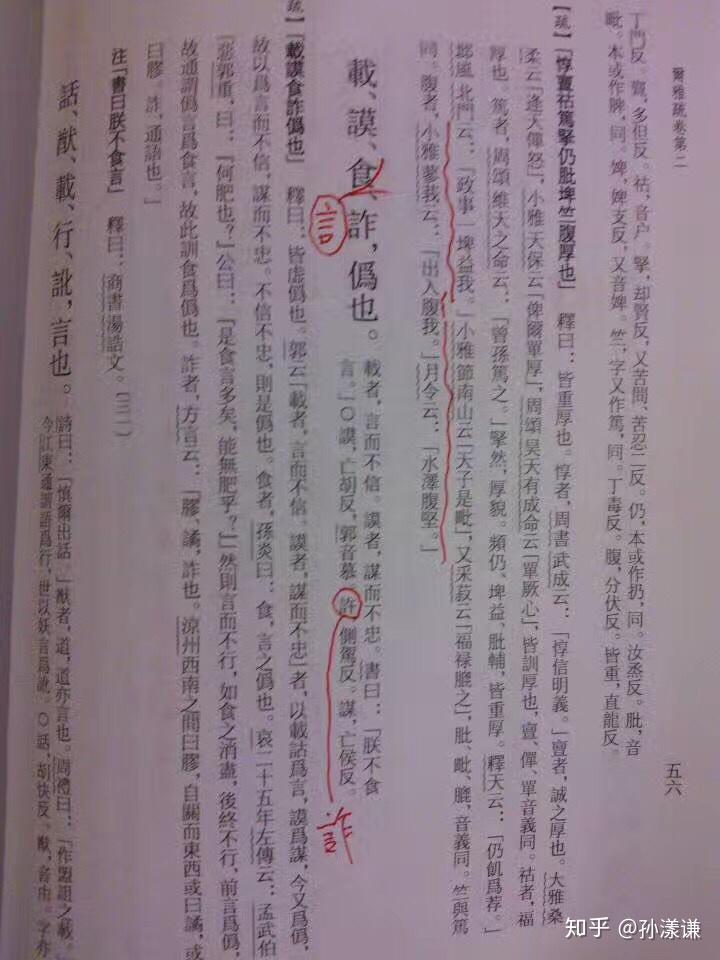 爾雅疏卷第二
五六
丁門反。亶，多但反。祜，音户。掔，却賢反，又苦閒、苦忍二反。仍，本或作扔，同。汝烝反。肶，音
毗。本或作脾，同。埤，婢支反，又音婢。竺，字又作篤，同。丁毒反。腹，分伏反。皆重，直龍反。
【疏】「惇亶祜篤掔仍肶埤竺腹厚也」　釋曰：皆重厚也。惇者，周書武成云：「惇信明義。」亶者，誠之厚也。大雅桑
柔云「逢天僤怒」，小雅天保云「俾爾單厚」，周頌昊天有成命云「單厥心」，皆訓厚也，亶、僤、單音義同。祜者，福
厚也。篤者，周頌維天之命云：「曾孫篤之。」掔然，厚貌。頻仍、埤益、肶輔，皆重厚。釋天云：「仍飢爲荐。」
邶風北門云：「政事一埤益我。」小雅節南山云「天子是毗」，又采菽云「福禄膍之」，肶、毗、膍，音義同。竺與篤
同。腹者，小雅蓼莪云：「出入腹我。」月令云：「水澤腹堅。」
載、謨、食、詐，僞也。載者，言而不信。謨者，謀而不忠。書曰：「朕不食
言。」〇謨，亡胡反，郭音慕。許，側駕反。謀，亡侯反。
言
詐
【疏】「載謨食詐僞也」　釋曰：皆虛僞也。郭云「載者，言而不信。謨者，謀而不忠」者，以載詁爲言，謨爲謀，今又爲僞，
故以爲言而不信，謀而不忠。不信不忠，則是僞也。食者，孫炎曰：食，言之僞也。哀二十五年左傳云：孟武伯
惡郭重，曰：「何肥也？」公曰：「是食言多矣，能無肥乎？」然則言而不行，如食之消盡，後終不行，前言爲僞，
故通謂僞言爲食言，故此訓食爲僞也。詐者，方言云：「膠、譎，詐也。涼州西南之間曰膠，自關而東西或曰譎，或
曰膠。詐，通語也。」
注「書曰朕不食言」　釋曰：商書湯誥文。〔三一〕
話、猷、載、行、訛，言也。詩曰：「慎爾出話。」猷者，道，道亦言也。周禮曰：「作盟詛之載。」
今江東通謂語爲行，世以妖言爲訛。〇話，胡快反。猷，音由。字亦
知乎 @孙漾谦